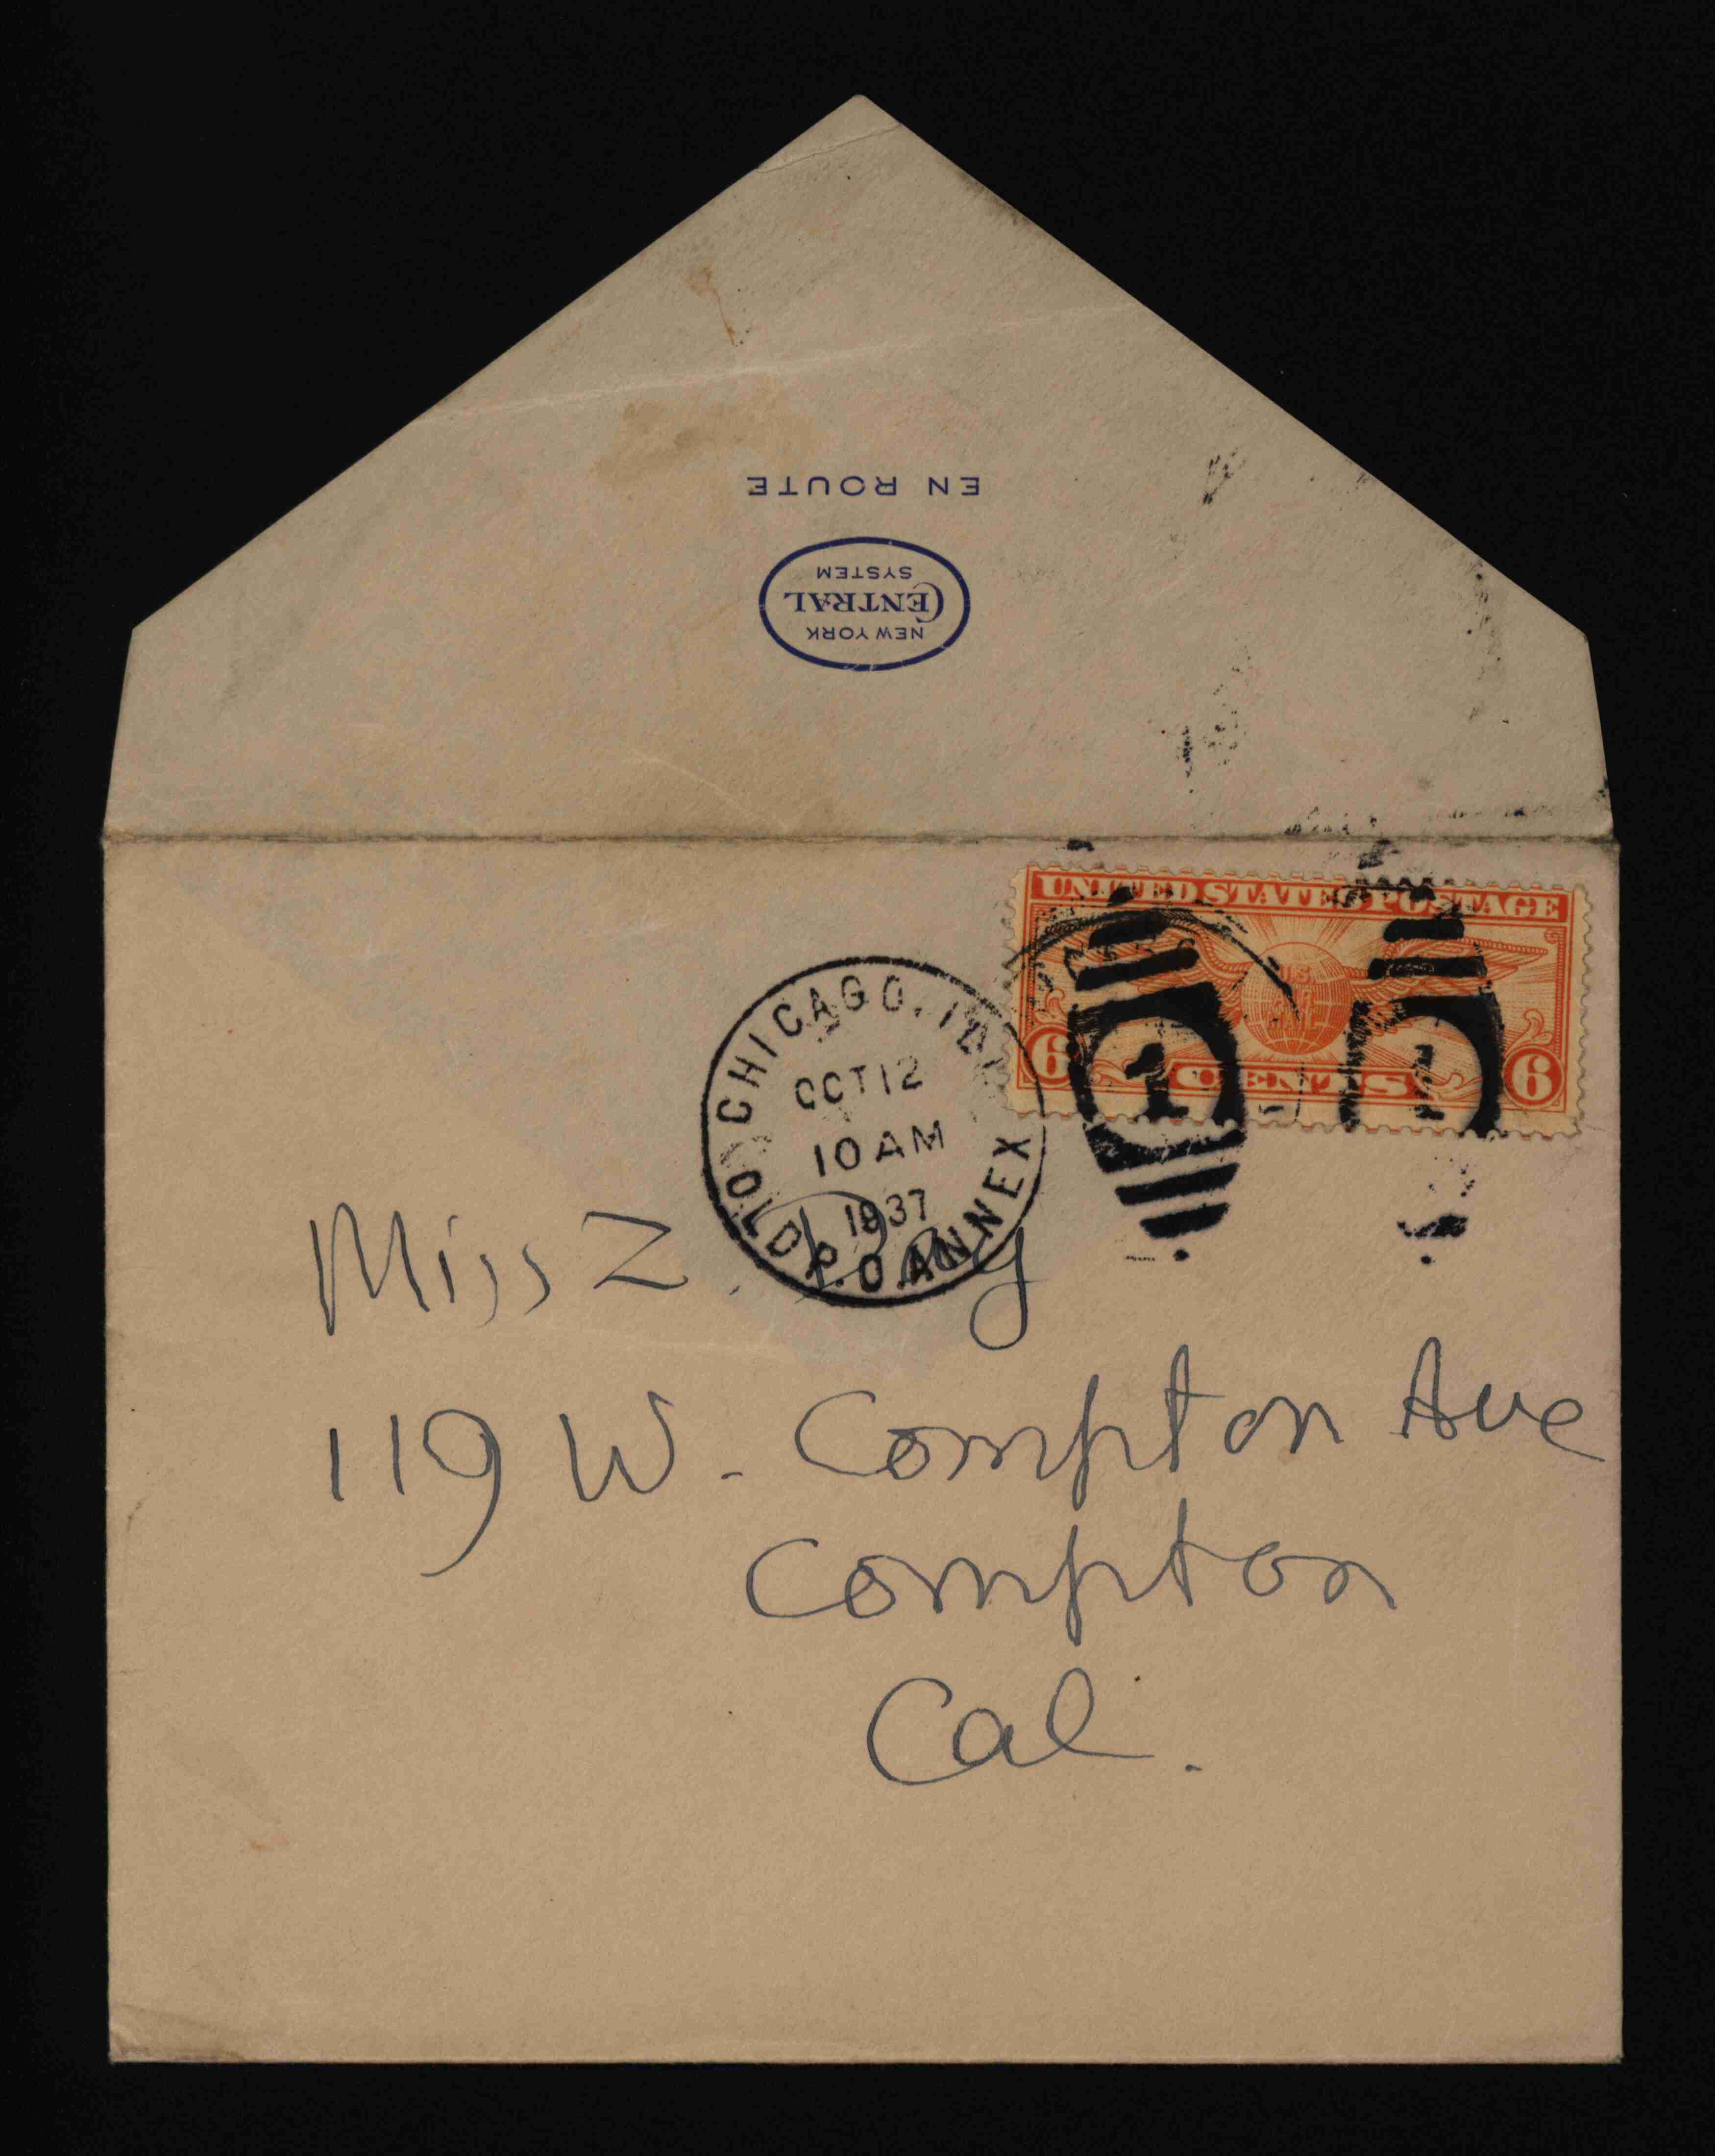 EN ROUTE
NEW YORK
CENTRAL
SYSTEM
UNITED STATES POSTAGE
6 CENTS 6
CHICAGO, ILL
OCT 12
10 AM
1937
OLD P.O. ANNEX
1
1
Miss Z.
119 W. Compton Ave
Compton
Cal.